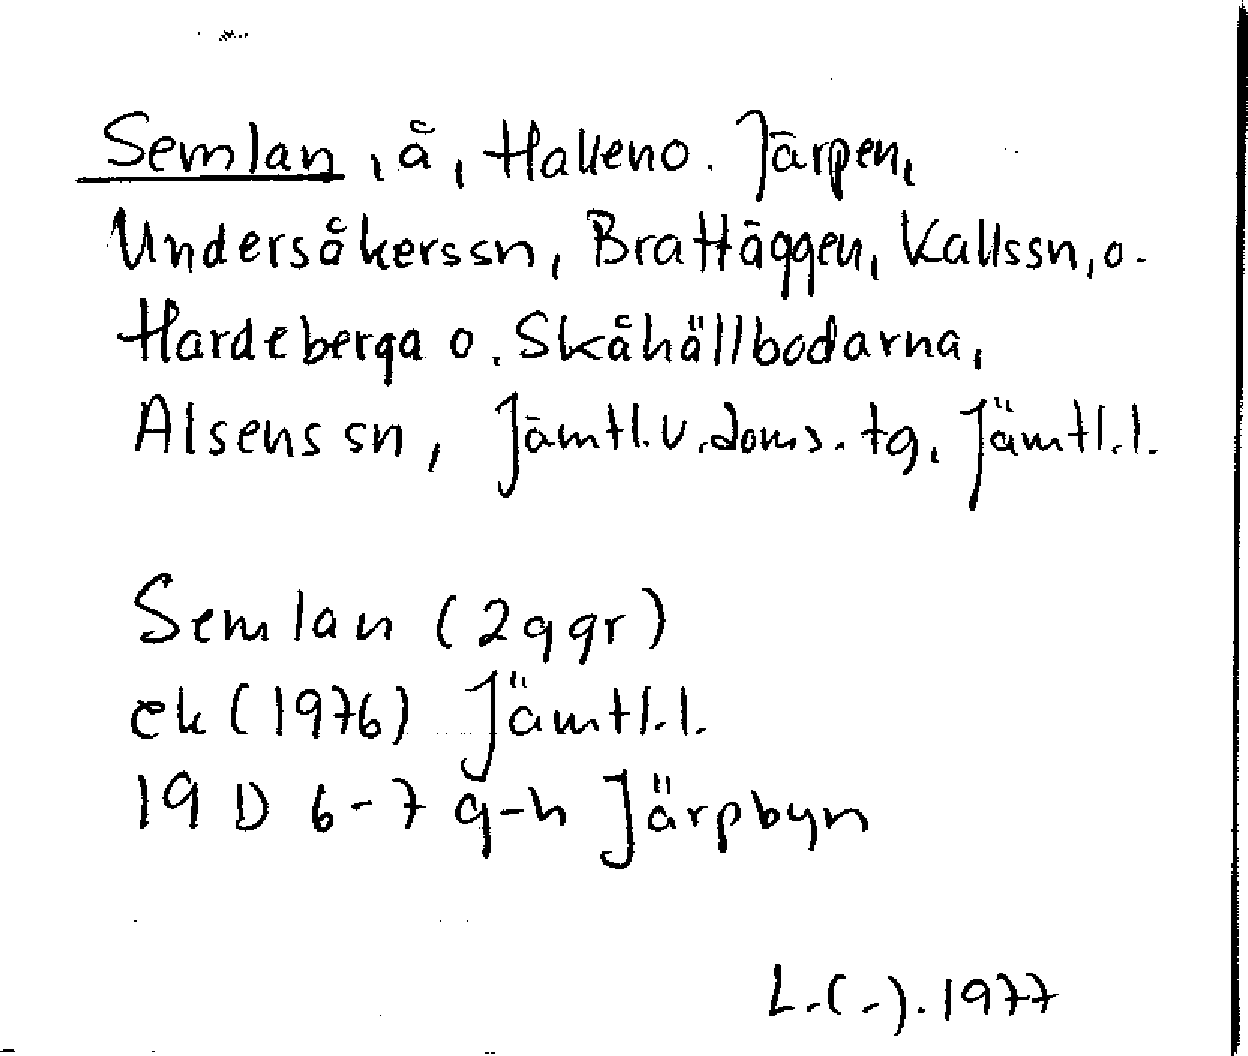 Semlan, å, Halleno. Järpen,
Undersåkerssn, Brattäggen, Kallssn, o.
Hardeberga o. Skåhällbodarna,
Alsens sn, Jämtl. v. doms. tg, Jämtl. l.
Semlan (2 ggr)
ek (1976) Jämtl. l.
19 D 6-7 g-h Järpbyn
L.(-). 1977